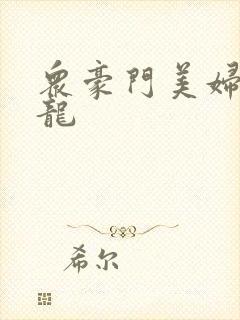 衆豪門美婦
龍
希尔